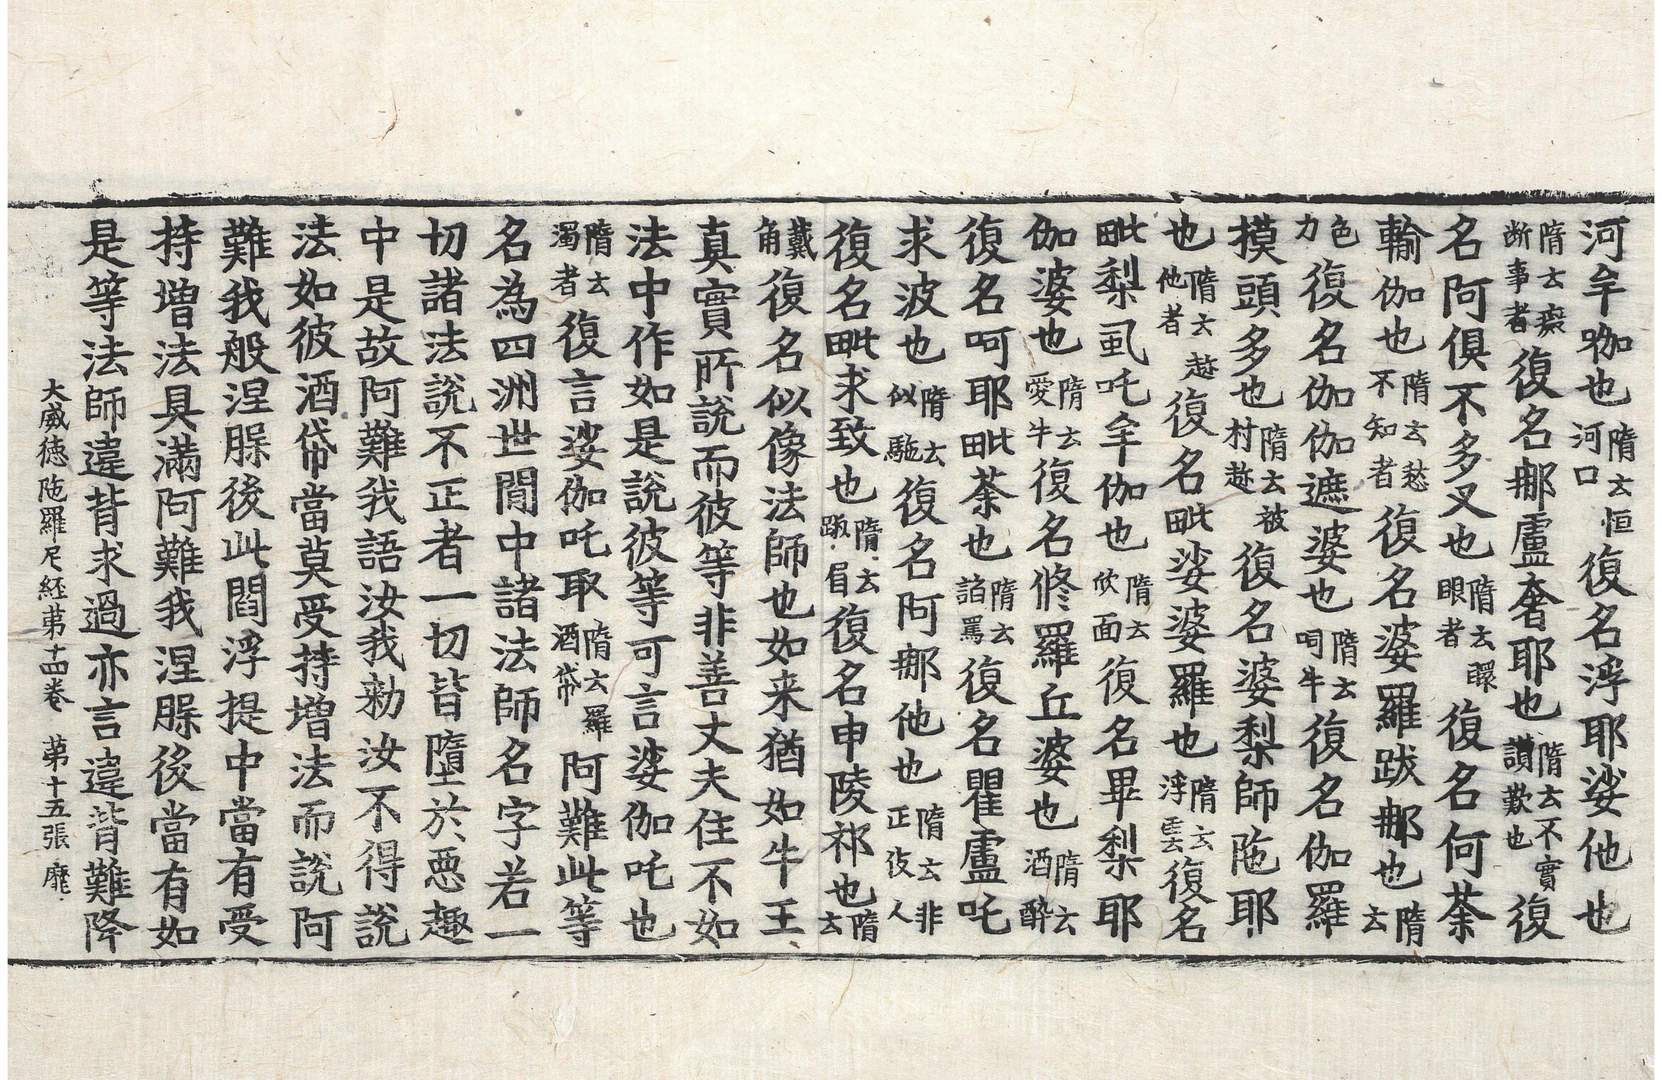 河牟咖也隋云恒河口復名浮耶娑他也
隋云癡断事者復名郍盧奢耶也隋云不實讃歎也復
名阿俱不多叉也隋云環眼者復名何荼
輸伽也隋云愁不知者復名婆羅跋郍也隋云
色力復名伽伽遮婆也隋云呞牛復名伽羅
摸頭多也隋云被村趂復名婆梨師陁耶
也隋云他者趂復名毗娑婆羅也隋云浮雲復名
毗梨虱吒牟伽也隋云㰦面復名毕梨耶
伽婆也隋云愛牛復名修羅丘婆也隋云酒醉
復名呵耶毗荼也隋云謟罵復名瞿盧吒
求波也隋云似駞復名阿郍他也隋云非正伇人
復名毗求致也隋云皺眉復名申陵祁也隋云
戴角復名似像法師也如来猶如牛王
真實所說而彼等非善丈夫住不如
法中作如是說彼等可言娑伽吒也
隋云濁者復言娑伽吒取隋云羅酒帒阿難此等
名為四洲世間中諸法師名字若一
切諸法說不正者一切皆墮於惡趣
中是故阿難我語汝我勑汝不得說
法如彼酒帒當莫受持增法而說阿
難我般涅槃後此閻浮提中當有受
持增法具滿阿難我涅槃後當有如
是等法師違背求過亦言違背難降
大威徳陁羅尼経苐十四卷　第十五張　靡